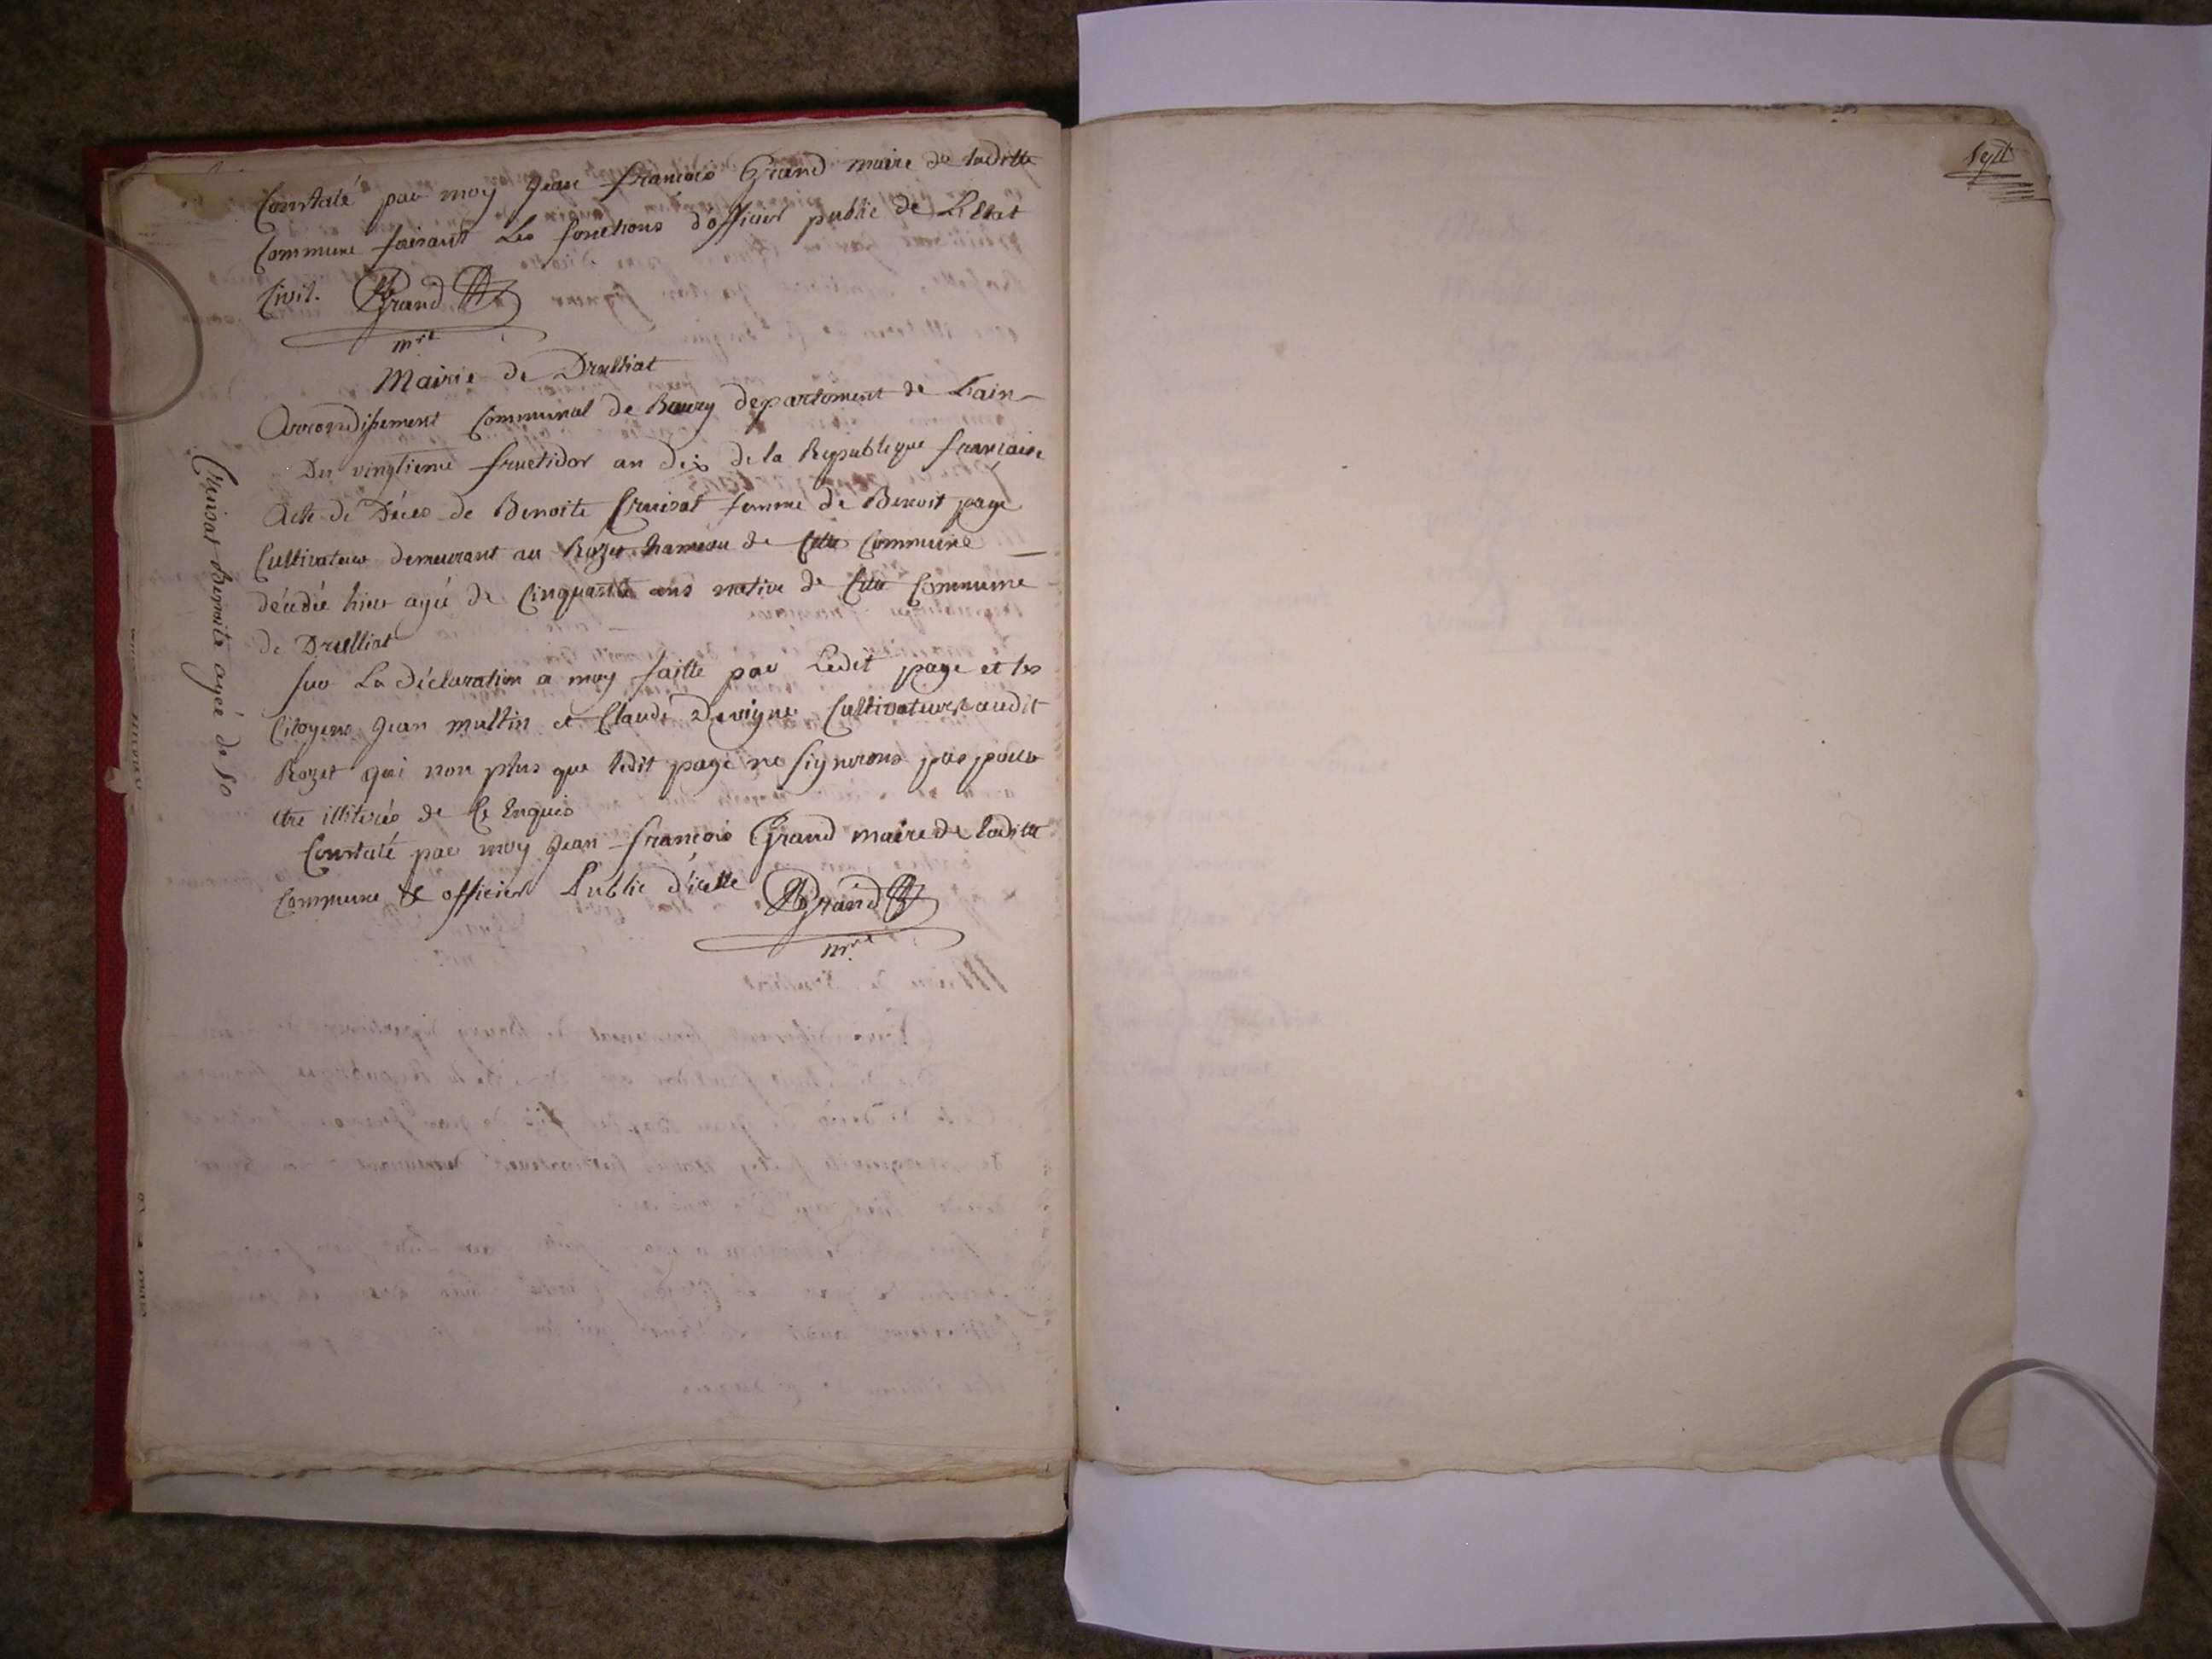 Constaté par moy Jean françois Grand maire de laditte
Commune faisant Les fonctions d'officier public de L'Etat
Civil. Grand
mre
Mairie de Druilliat
Arrondissement Communal de Bourg departement de L'ain
Du vingtieme fructidor an dix de la Republique francaise
Acte de Décès de Benoite Chuisat femme de Benoit page
Cultivateur demeurant au Rozet hameau de Cette Commune
décédée hier agée de Cinquante ans native de Cette Commune
de Druilliat
sur La déclaration a moy faitte par Ledit page et les
Citoyens Jean multin et Claude Devigne Cultivateurs audit
Rozet qui non plus que ledit page ne signerons pas pour
etre illiterés de Ce Enquis
Constaté par moy Jean françois Grand maire de laditte
Commune & officier Public d'icelle Grand
mre
Chuisat Benoite agée de 50
Sept